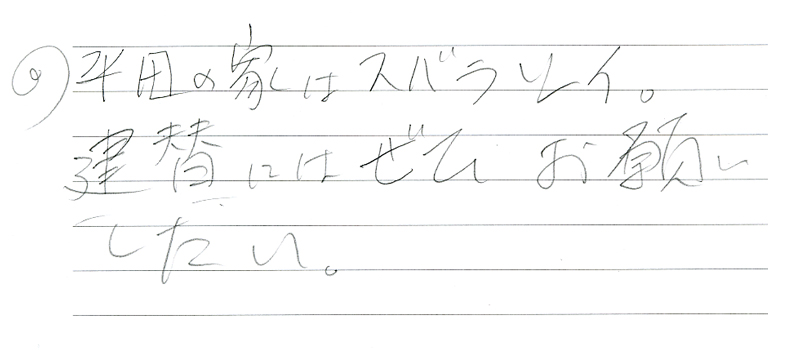 平田の家はスバラシイ。
建替にはぜひお願い
したい。